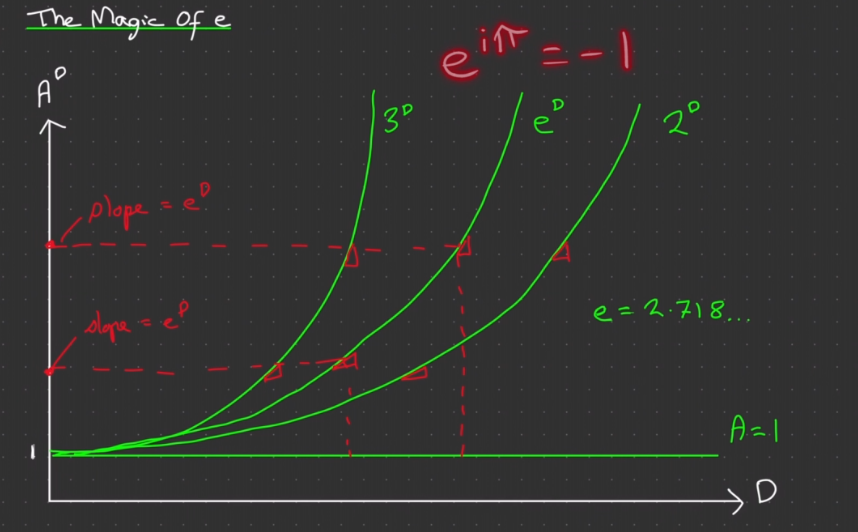 The Magic Of e
e^{iπ} = -1
A^D
3^D
e^D
2^D
slope = e^D
slope = e^D
e = 2.718...
A=1
1
D